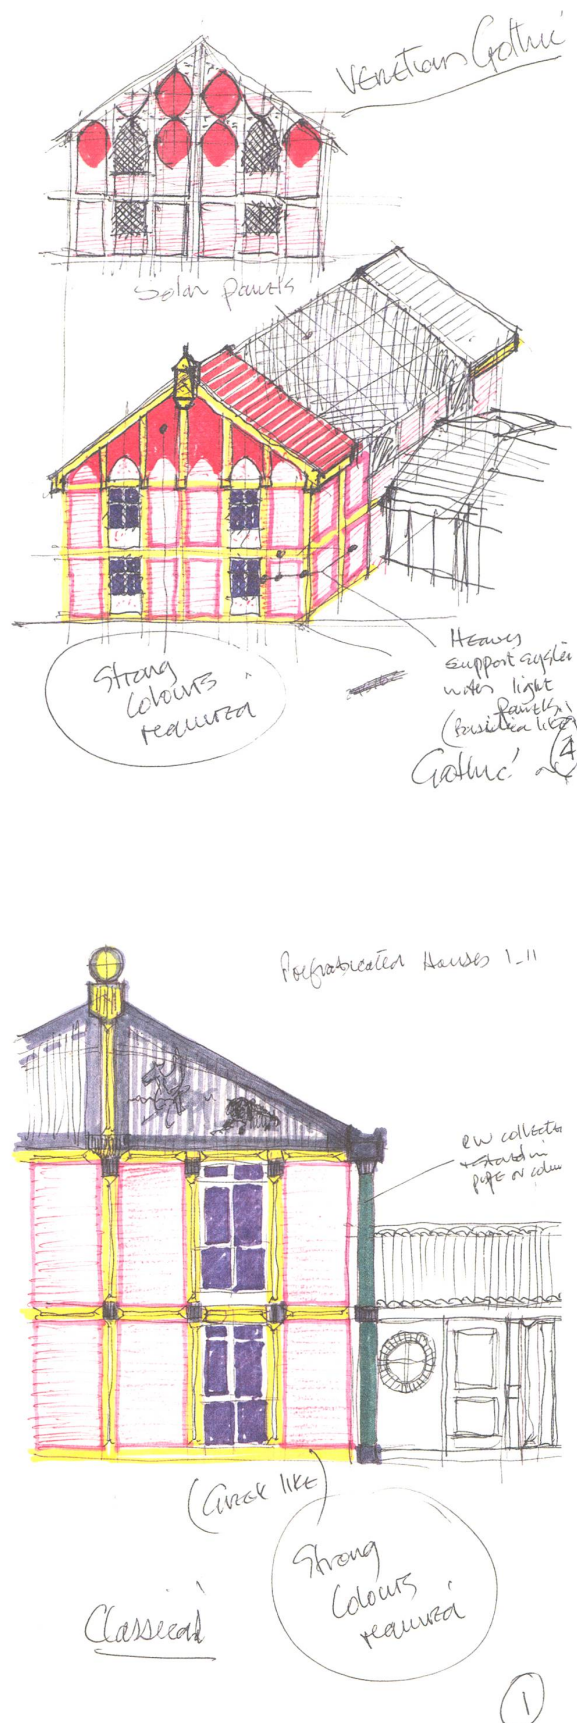 Venetian Gothic
Solar panels
Strong
colours
required
Heavy
support system
with light
panels
(Basilica like)
4
Gothic
Prefabricated Houses 1-11
RW collected
pipe or colum
(Greek like)
Strong
colours
required
Classical
1